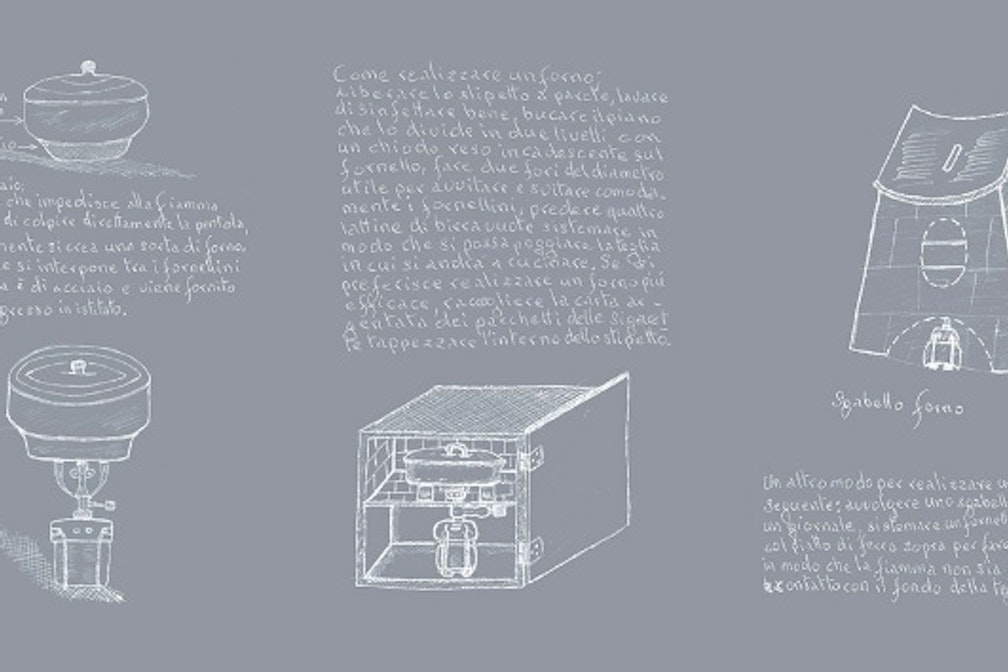 aio;
che impedisce alla fiamma
di colpire direttamente la pentola,
mente si crea una sorta di forno.
e si interpone tra i fornellini
a è di acciaio e viene fornito
gresso in istituto.
Come realizzare un forno;
liberare lo stipetto a parete, lavare
disinfettare bene, bucare il piano
che lo divide in due livelli con
un chiodo reso incadescente sul
fornello, fare due fori del diametro
utile per avvitare e svitare comoda-
mente i fornellini, predere quattro
lattine di birra vuote sistemare in
modo che si possa poggiare la teglia
in cui si andrà a cucinare. Se si
preferisce realizzare un forno più
efficace, raccogliere la carta ar-
gentata dei pacchetti delle sigaret
te tappezzare l'interno dello stipetto.
Sgabello forno
Un altro modo per realizzare un
seguente; avvolgere uno sgabell
un giornale, sistemare un fornell
col piatto di ferro sopra per fare
in modo che la fiamma non sia
contatto con il fondo della te